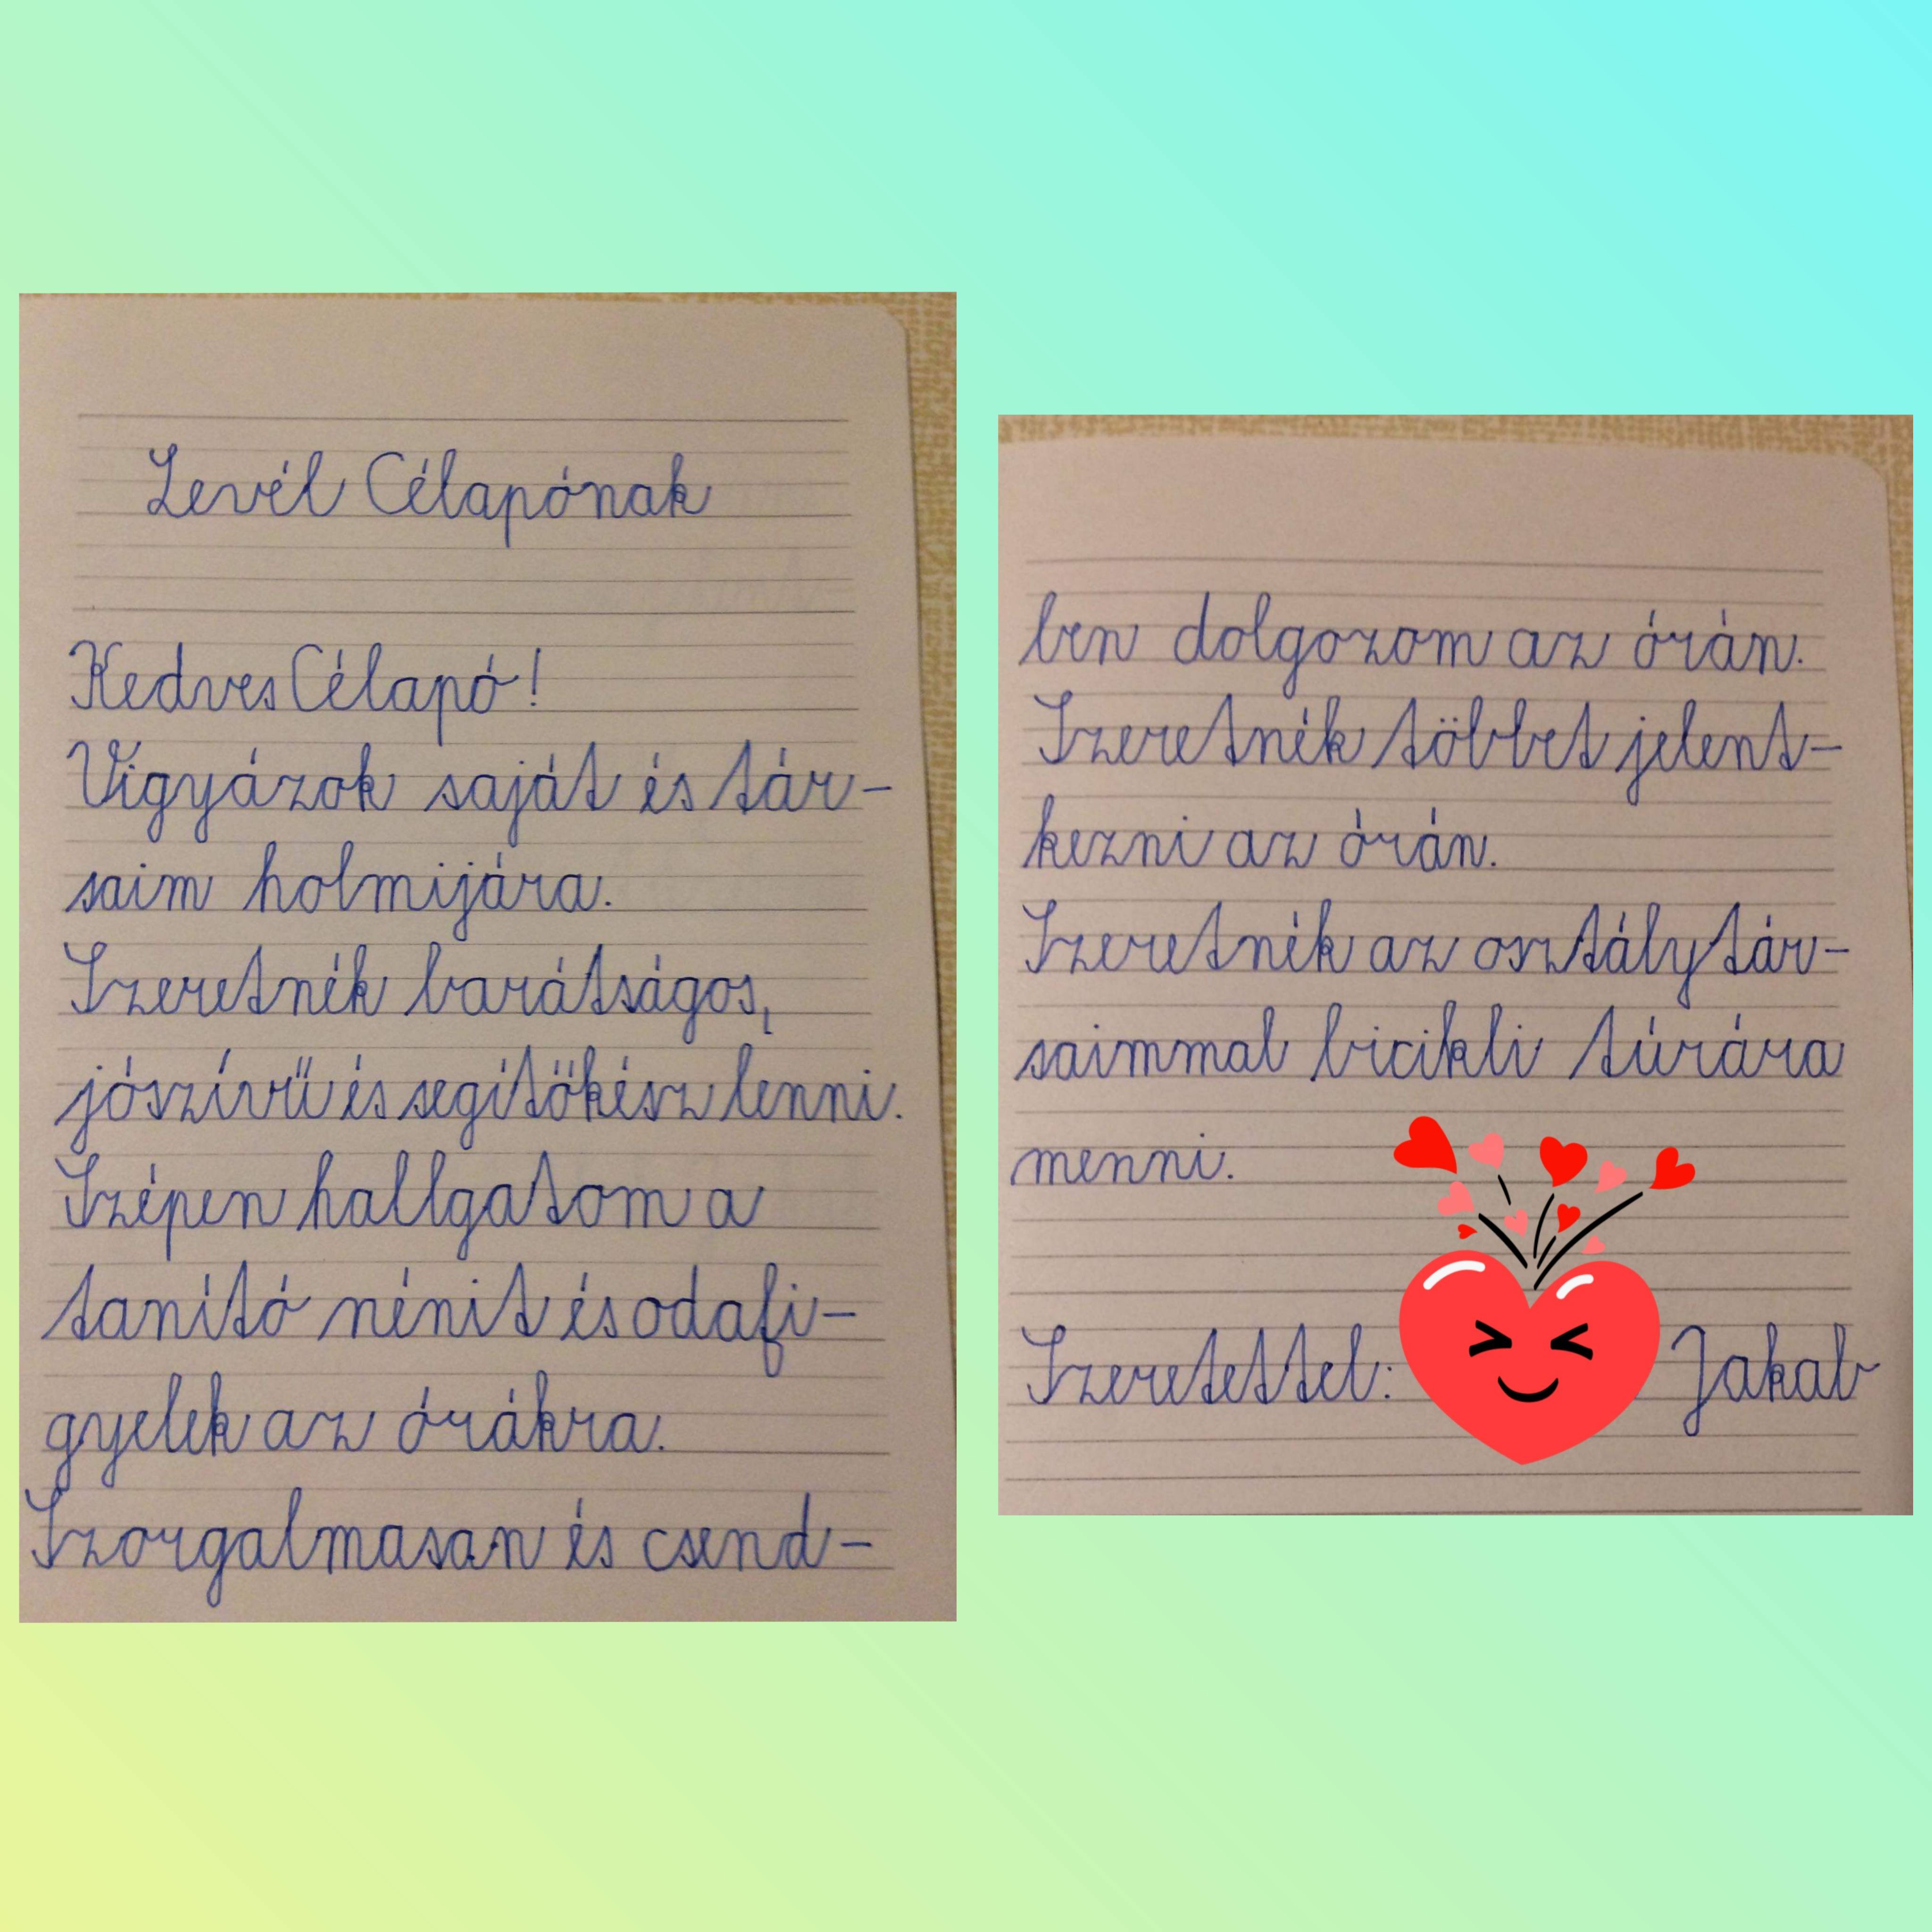 Levél Célapónak
Kedves Célapó!
Vigyázok saját és tár-
saim holmijára.
Szeretnék barátságos,
jószívű és segítőkész lenni.
Szépen hallgatom a
tanító nénit és odafi-
gyelek az órákra.
Szorgalmasan és csend-
ben dolgozom az órán.
Szeretnék többet jelent-
kezni az órán.
Szeretnék az osztálytár-
saimmal bicikli túrára
menni.
Szeretettel: Jakab